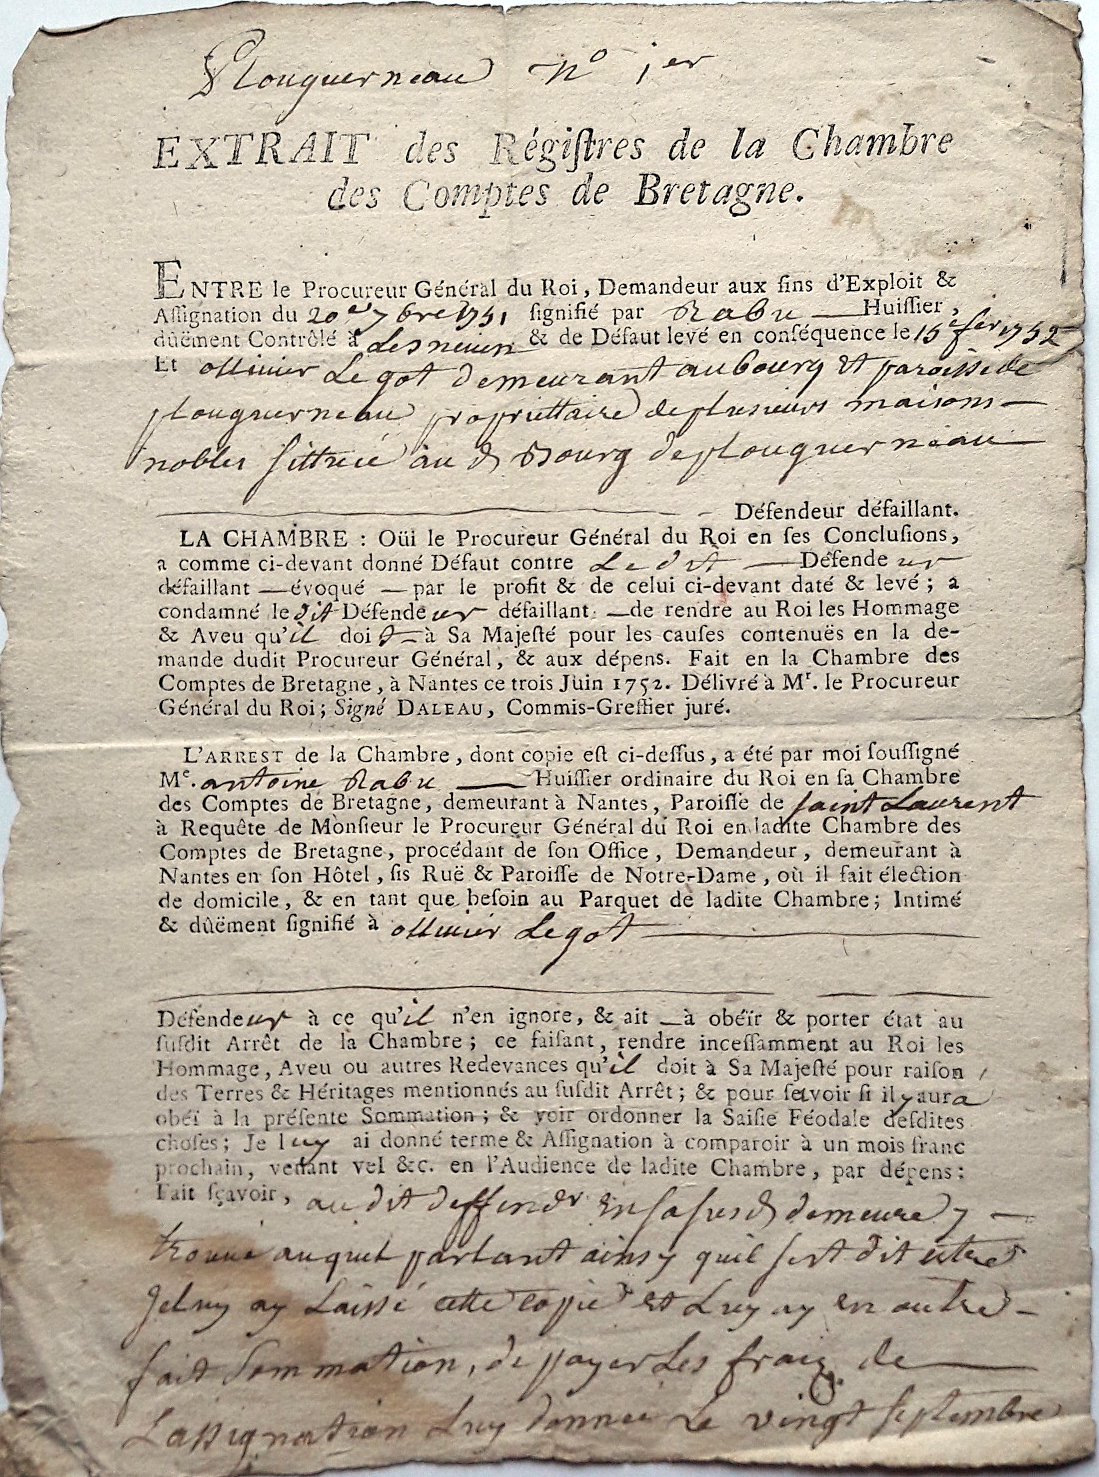 Plouguerneau n° 1er
EXTRAIT des Régiſtres de la Chambre
des Comptes de Bretagne.
ENTRE le Procureur Général du Roi, Demandeur aux fins d'Exploit &
Aſſignation du 20e 7bre 1751 ſignifié par Rabu Huiſſier,
dûëment Contrôlé à Lesneven & de Défaut levé en conſéquence le 15e fer 1752
Et ollivier Le got demeurant au bourg et paroisse de
plouguerneau propriettaire de plusieurs maisons
nobles sittuée au d Bourg de plouguerneau
Défendeur défaillant.
LA CHAMBRE : Oüi le Procureur Général du Roi en ſes Concluſions,
a comme ci-devant donné Défaut contre Ledit Défendeur
défaillant — évoqué — par le profit & de celui ci-devant daté & levé ; a
condamné ledit Défendeur défaillant — de rendre au Roi les Hommage
& Aveu qu'il doit à Sa Majeſté pour les cauſes contenuës en la de-
mande dudit Procureur Général, & aux dépens. Fait en la Chambre des
Comptes de Bretagne, à Nantes ce trois Juin 1752. Délivré à Mr. le Procureur
Général du Roi ; Signé DALEAU, Commis-Greffier juré.
L'ARREST de la Chambre, dont copie eſt ci-deſſus, a été par moi ſouſſigné
Me. antoine Rabu — Huiſſier ordinaire du Roi en ſa Chambre
des Comptes de Bretagne, demeurant à Nantes, Paroiſſe de saint Laurent
à Requête de Monſieur le Procureur Général du Roi en ladite Chambre des
Comptes de Bretagne, procédant de ſon Office, Demandeur, demeurant à
Nantes en ſon Hôtel, ſis Ruë & Paroiſſe de Notre-Dame, où il fait élection
de domicile, & en tant que beſoin au Parquet de ladite Chambre ; Intimé
& dûëment ſignifié à ollivier Le got
Défendeur à ce qu'il n'en ignore, & ait — à obéïr & porter état au
ſuſdit Arrêt de la Chambre ; ce faiſant, rendre inceſſamment au Roi les
Hommage, Aveu ou autres Redevances qu'il doit à Sa Majeſté pour raiſon
des Terres & Héritages mentionnés au ſuſdit Arrêt ; & pour ſçavoir ſi il y aura
obéï à la préſente Sommation ; & voir ordonner la Saiſie Féodale deſdites
choſes ; Je luy ai donné terme & Aſſignation à comparoir à un mois franc
prochain, venant vel &c. en l'Audience de ladite Chambre, par dépens :
Fait ſçavoir, au dit deffendr en sa susd demeure y
trouvé auquel parlant ainsy quil sest dit estre
Jeluy ay Laissé cette copie et Luy ay en outre
fait Sommation, de payer Les fraiz de
Lassignation Luy donnée Le vingt septembre